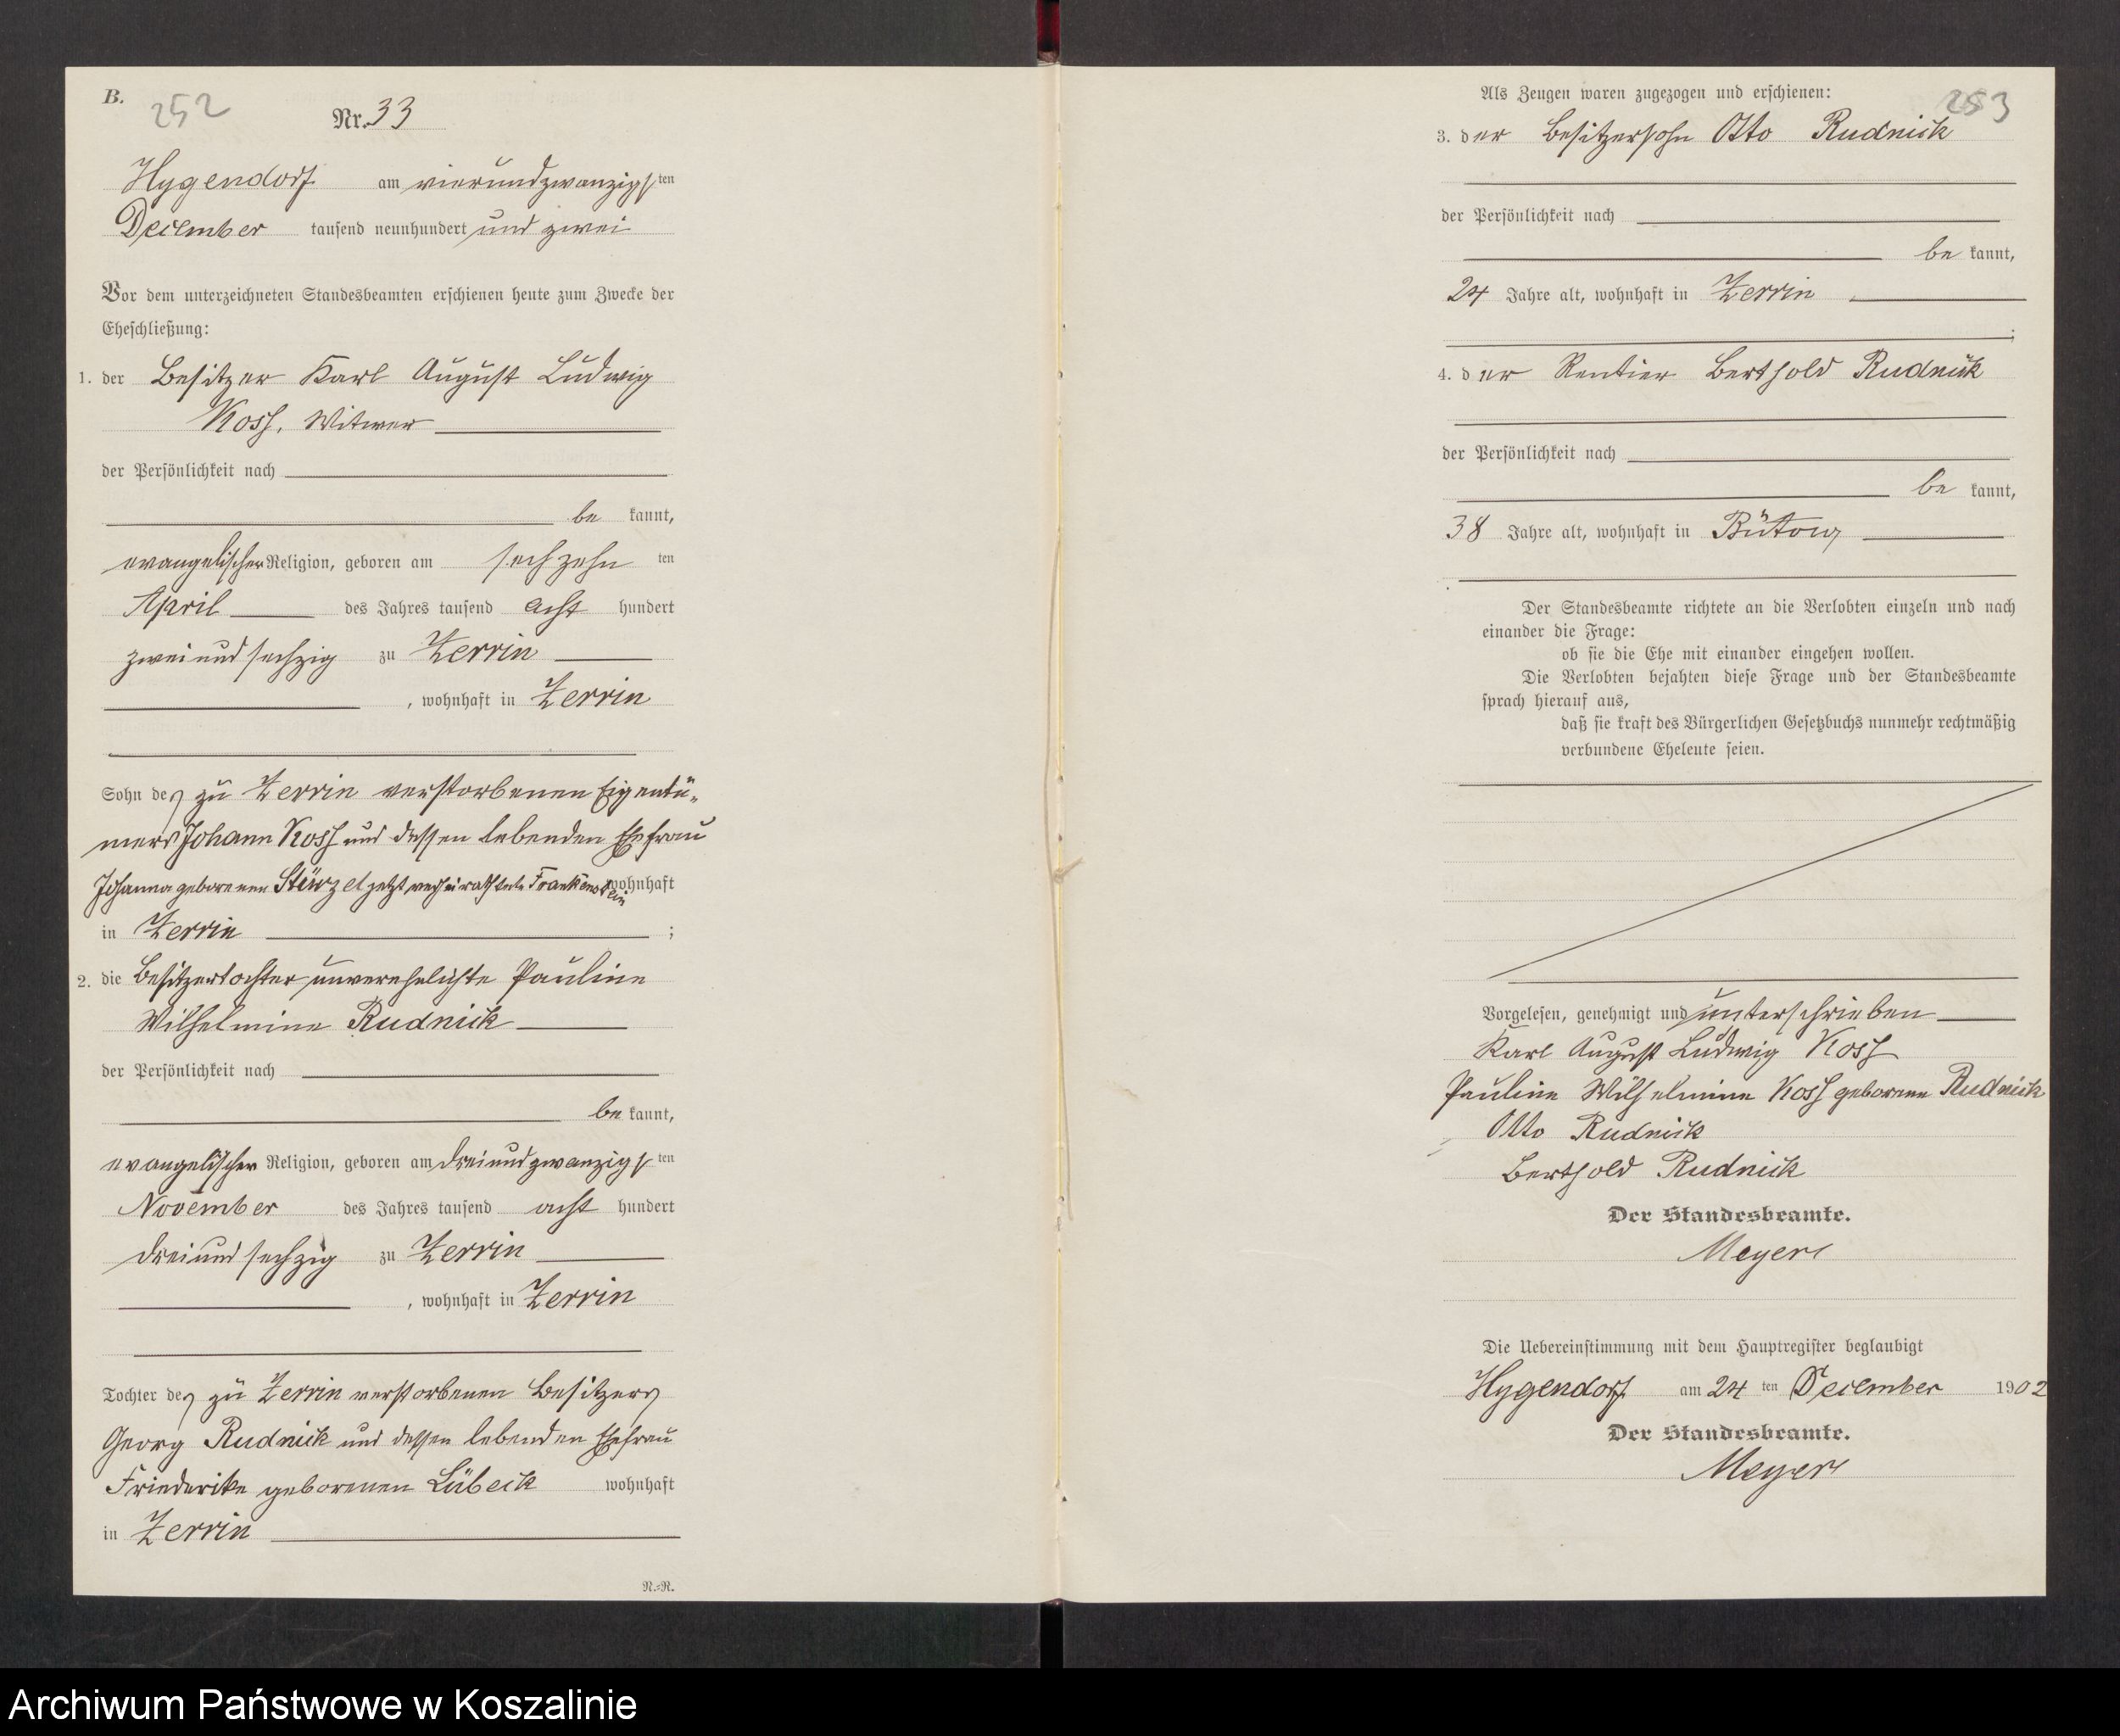 B.
252
Nr. 33
Hygendorf am vierundzwanzigsten
December tausend neunhundert und zwei
Vor dem unterzeichneten Standesbeamten erschienen heute zum Zwecke der
Eheschließung:
1. der Besitzer Karl August Ludwig
Koss, Witwer
der Persönlichkeit nach
be kannt,
evangelischer Religion, geboren am sechzehn ten
April des Jahres tausend acht hundert
zweiundsechzig zu Zerrin
, wohnhaft in Zerrin
Sohn des zu Zerrin verstorbenen Eigentü-
mers Johann Koss und dessen lebenden Ehefrau
Johanna geborenen Stürzel jetzt verheirathete Frankenstein wohnhaft
in Zerrin ;
2. die Besitzertochter unverehelichte Pauline
Wilhelmine Rudnick
der Persönlichkeit nach
be kannt,
evangelischer Religion, geboren am dreiundzwanzigsten
November des Jahres tausend acht hundert
dreiundsechzig zu Zerrin
, wohnhaft in Zerrin
Tochter des zu Zerrin verstorbenen Besitzers
Georg Rudnick und dessen lebenden Ehefrau
Friederike geborenen Lübeck wohnhaft
in Zerrin
R.-R.
253
Als Zeugen waren zugezogen und erschienen:
3. der Besitzersohn Otto Rudnick
der Persönlichkeit nach
be kannt,
24 Jahre alt, wohnhaft in Zerrin
;
4. der Rentier Berthold Rudnick
der Persönlichkeit nach
be kannt,
38 Jahre alt, wohnhaft in Bütow
Der Standesbeamte richtete an die Verlobten einzeln und nach
einander die Frage:
ob sie die Ehe mit einander eingehen wollen.
Die Verlobten bejahten diese Frage und der Standesbeamte
sprach hierauf aus,
daß sie kraft des Bürgerlichen Gesetzbuchs nunmehr rechtmäßig
verbundene Eheleute seien.
Vorgelesen, genehmigt und unterschrieben
Karl August Ludwig Koss
Pauline Wilhelmine Koss geborene Rudnick
Otto Rudnick
Berthold Rudnick
Der Standesbeamte.
Meyer
Die Uebereinstimmung mit dem Hauptregister beglaubigt
Hygendorf am 24 ten December 1902
Der Standesbeamte.
Meyer
Archiwum Państwowe w Koszalinie